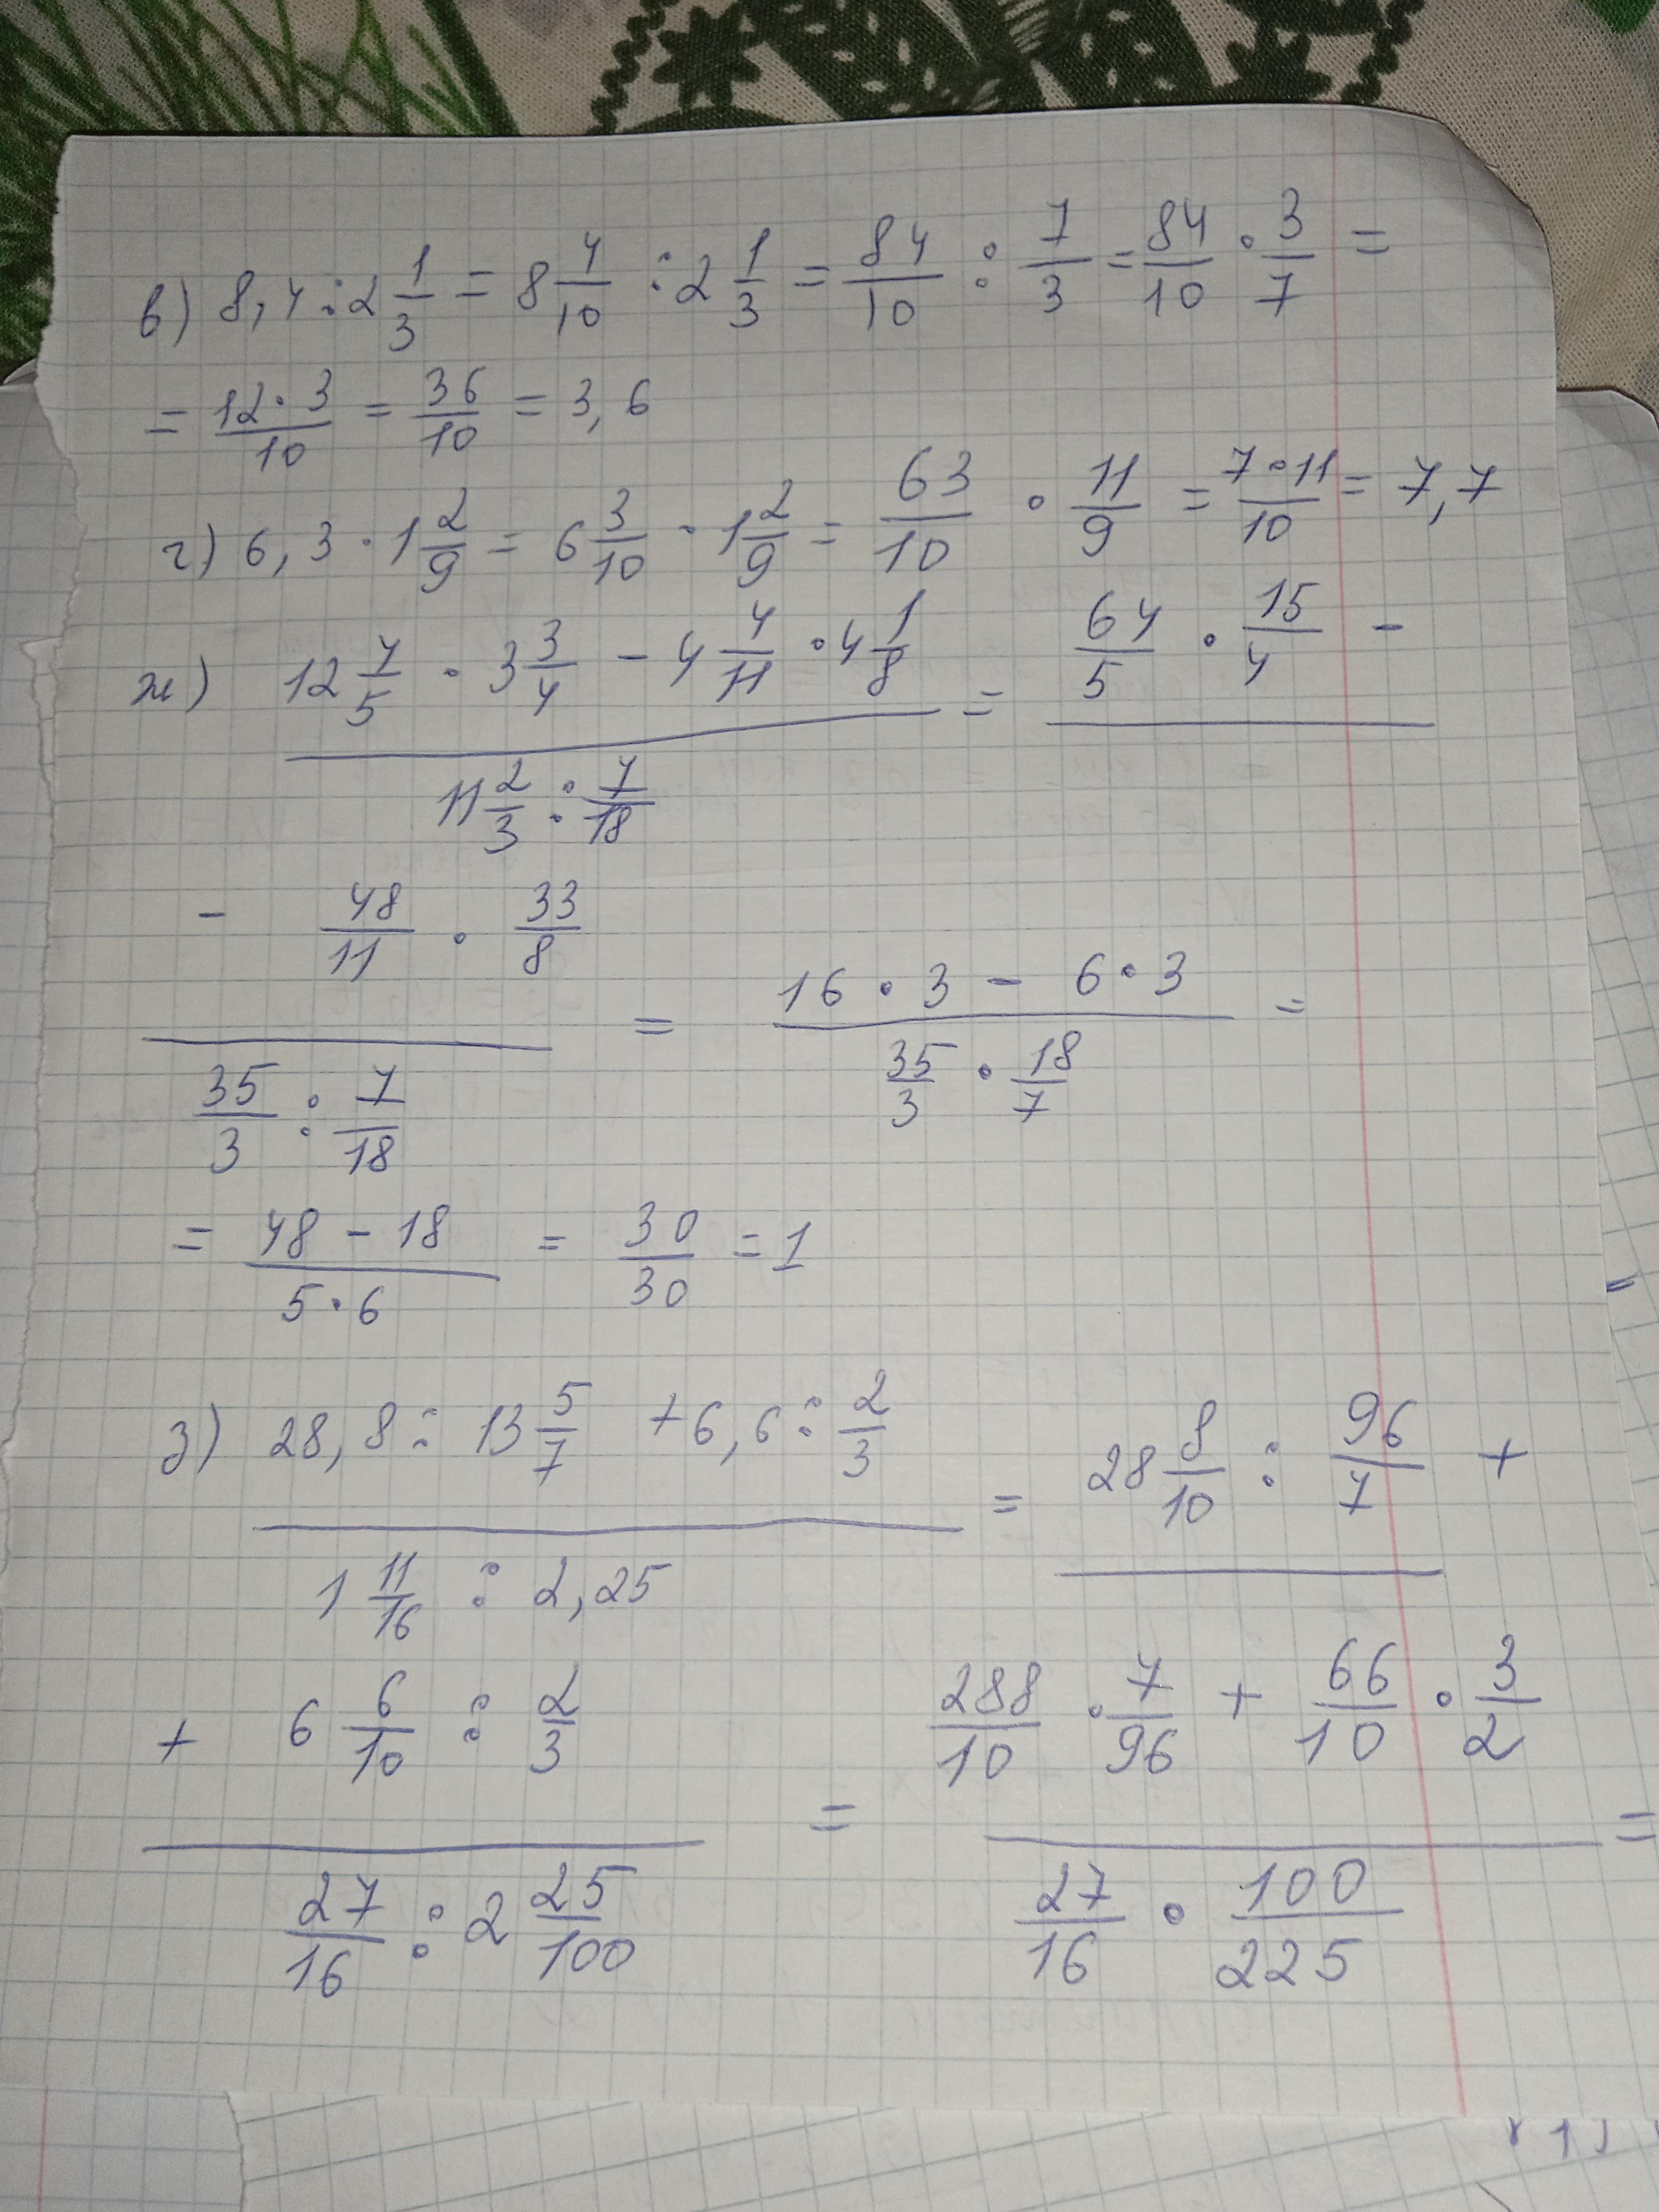 в) 8,4 : 2 1/3 = 8 4/10 : 2 1/3 = 84/10 : 7/3 = 84/10 · 3/7 =
= 12·3/10 = 36/10 = 3,6
г) 6,3 · 1 2/9 = 6 3/10 · 1 2/9 = 63/10 · 11/9 = 7·11/10 = 7,7
ж) (12 4/5 · 3 3/4 - 4 4/11 · 4 1/8) / (11 2/3 : 7/18) = 64/5 · 15/4 -
- 48/11 · 33/8 / (35/3 : 7/18) = (16 · 3 - 6 · 3) / (35/3 · 18/7) =
= (48 - 18) / (5·6) = 30/30 = 1
з) (28,8 : 13 5/7 + 6,6 : 2/3) / (1 11/16 : 2,25) = 28 8/10 : 96/7 +
+ 6 6/10 : 2/3 / (27/16 : 2 25/100) = (288/10 · 7/96 + 66/10 · 3/2) / (27/16 · 100/225) =